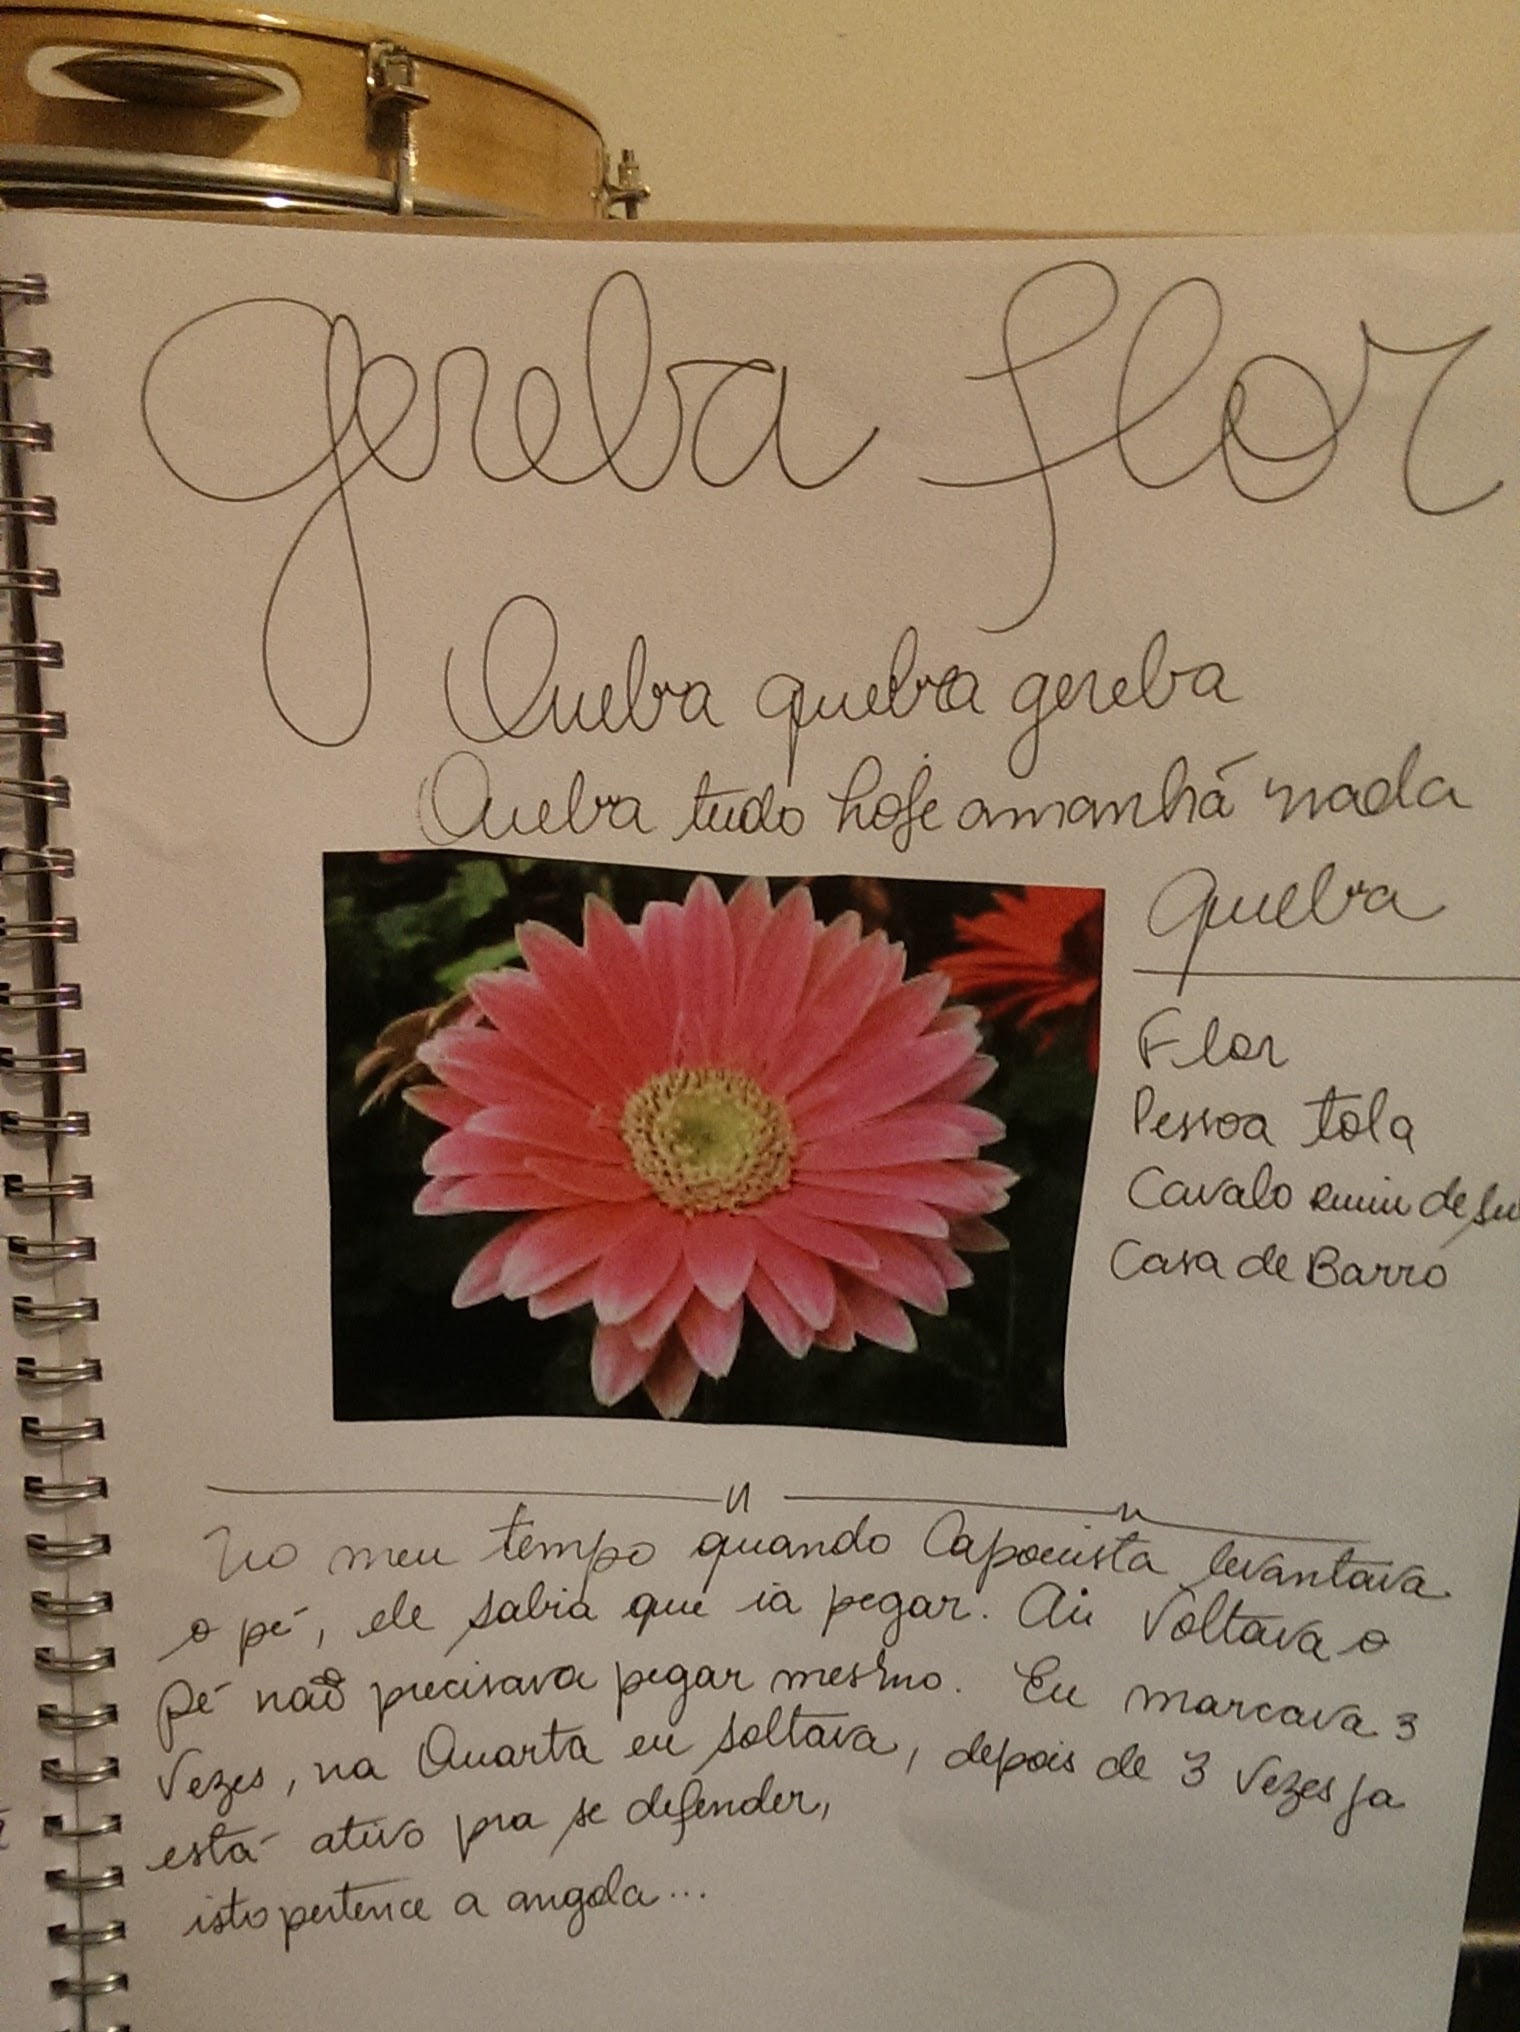 Gereba flor
Quebra quebra gereba
Quebra tudo hoje amanhá nada
quebra
Flor
Pessoa tola
Cavalo ruim de
Casa de Barro
No meu tempo quando Capoeirista levantava
o pé, ele sabia que ia pegar. Aii voltava o
pé não precisava pegar mesmo. Eu marcava 3
vezes, na Quarta eu soltava, depois de 3 vezes ja
está ativo pra se defender,
isto pertence a angola...